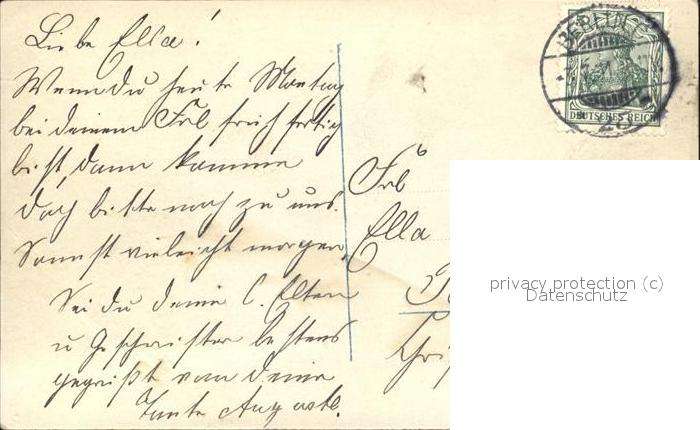 Liebe Ella!
Wenn du heute Montag
bei deinem Frl früh fertig
bist, dann komme
doch bitte noch zu uns.
Sonnst vieleicht morgen.
Sei du deine l. Eltern
u Geschwister bestens
gegrüßt von deine
Tante Auguste.
BERLIN
DEUTSCHES REICH
Frl
Ella
privacy protection (c)
Datenschutz